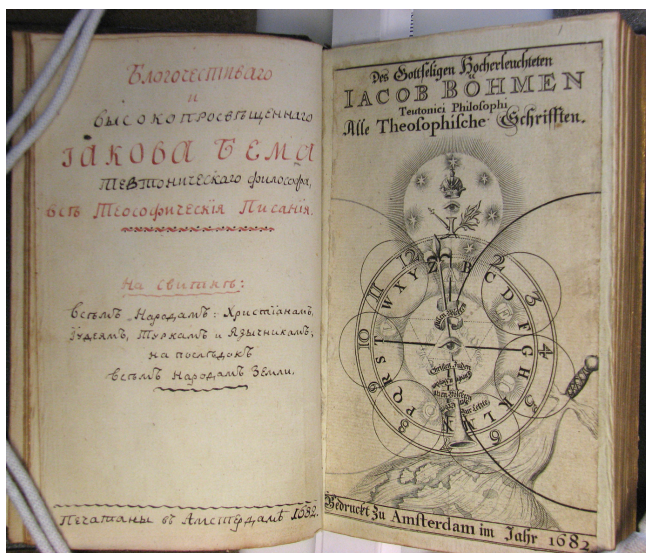 Благочестиваго
и
высокопросвѣщеннаго
ІАКОВА БЕМА
Тевтоническаго философа,
всѣ Теософическія Писанія.
На свитикѣ:
Всѣмъ Народамъ: Христіанамъ,
Іудеямъ, Туркамъ и Язычникамъ;
на послѣдокъ
Всѣмъ Народамъ Земли.
Печатаны въ Амстердамѣ 1682.
Des Gottseligen Hocherleuchteten
IACOB BÖHMEN
Teutonici Philosophi
Alle Theosophische Schrifften.
12 2 3 4 6 8 9 10 11
Z B C D F G H K L M N P Q R S T W X Y
Allen Völckern
Christen Juden
Allen Völckern
Zur Letzte
Gedruckt Zu Amsterdam im Jahr 1682